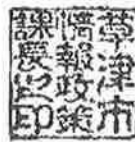 草津市
情報政策
課長之印